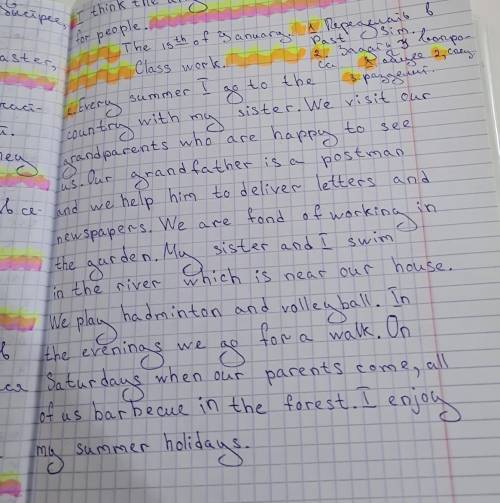 think the
for people.
The 15th of January
Class work.
1. Переделать в
Past Sim.
2. Задать 3 вопро-
са 1. общее 2. спец
3. раздели.
Every summer I go to the
country with my sister. We visit our
grandparents who are happy to see
us. Our grandfather is a postman
and we help him to deliver letters and
newspapers. We are fond of working in
the garden. My sister and I swim
in the river which is near our house.
We play badminton and volleyball. In
the evenings we go for a walk. On
Saturdays when our parents come, all
of us barbecue in the forest. I enjoy
my summer holidays.